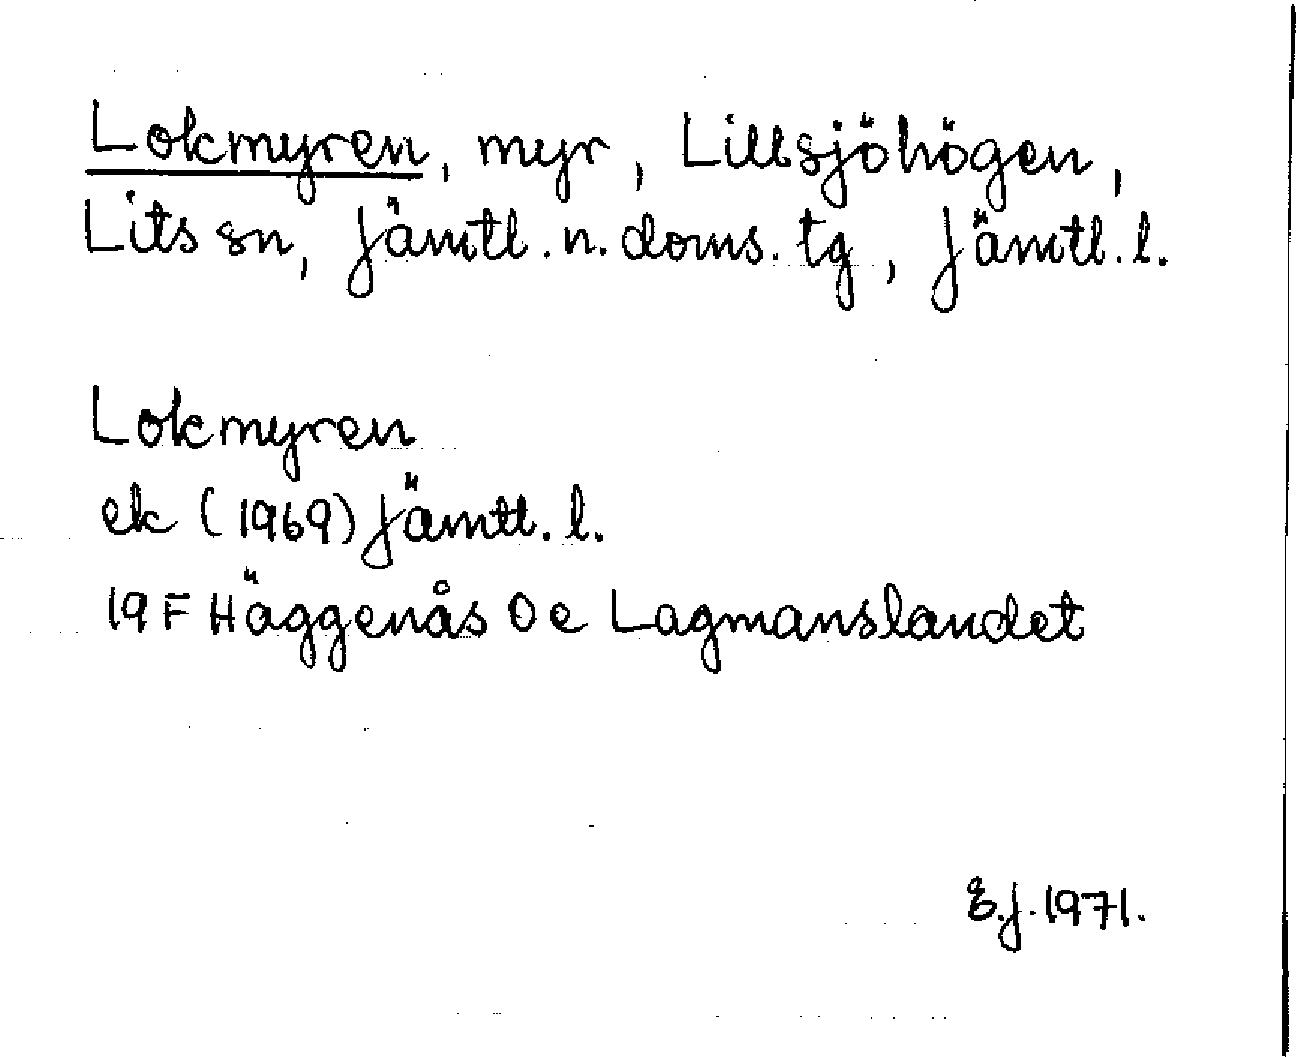 Lokmyren, myr, Lillsjöhögen,
Lits sn, Jämtl. n. doms. tg, Jämtl. l.
Lokmyren
ek (1969) Jämtl. l.
19F Häggenås 0e Lagmanslandet
E.J. 1971.